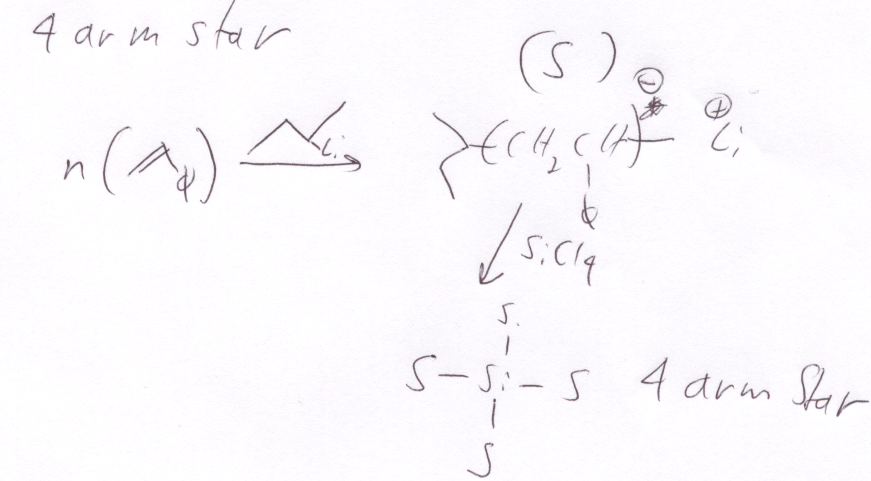 4 arm star
(S)
n( φ) Li ( CH2 CH ) ⊖ ⊕ Li
φ
SiCl4
S
S – Si – S 4 arm Star
S